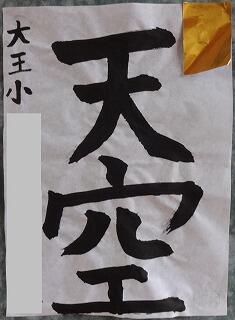 天空
大王小